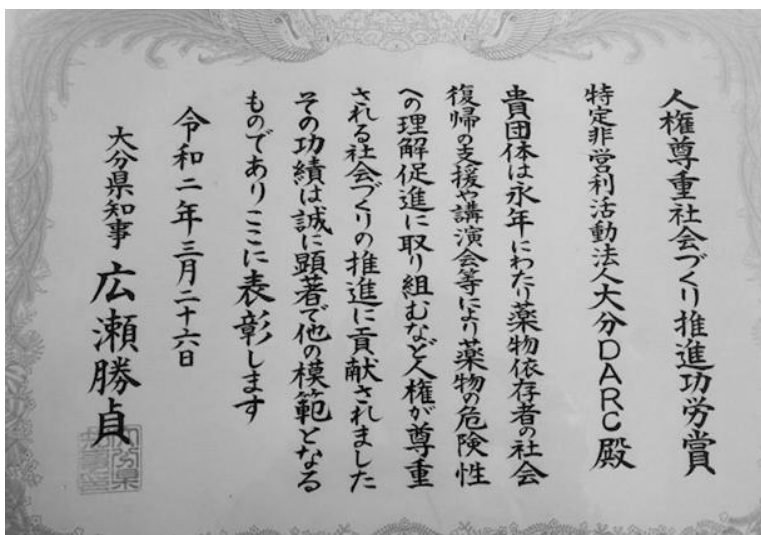 人権尊重社会づくり推進功労賞
特定非営利活動法人大分DARC殿
貴団体は永年にわたり薬物依存者の社会
復帰の支援や講演会等により薬物の危険性
への理解促進に取り組むなど人権が尊重
される社会づくりの推進に貢献されました
その功績は誠に顕著で他の模範となる
ものでありここに表彰します
令和二年三月二十六日
大分県知事 広瀬勝貞